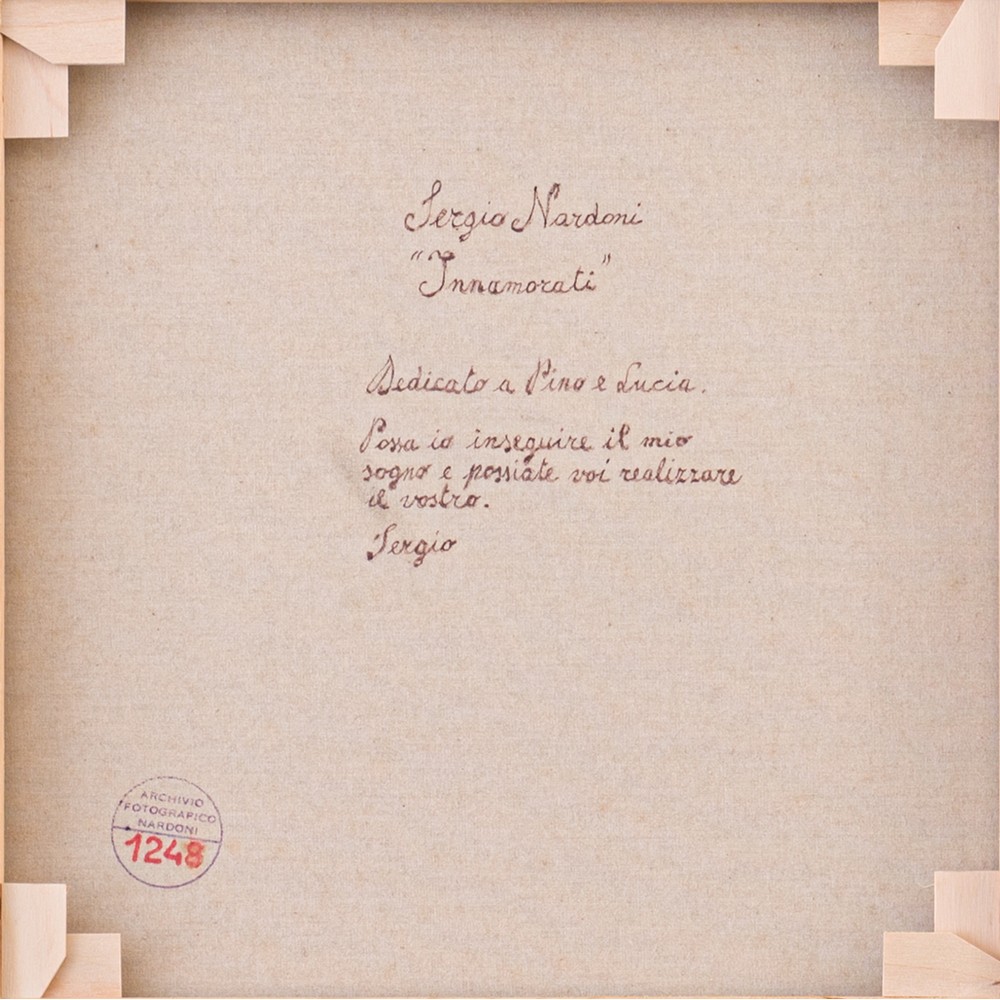 Sergio Nardoni
"Innamorati"
Dedicato a Pino e Lucia.
Possa io inseguire il mio
sogno e possiate voi realizzare
il vostro.
Sergio
ARCHIVIO
FOTOGRAFICO
NARDONI
1248